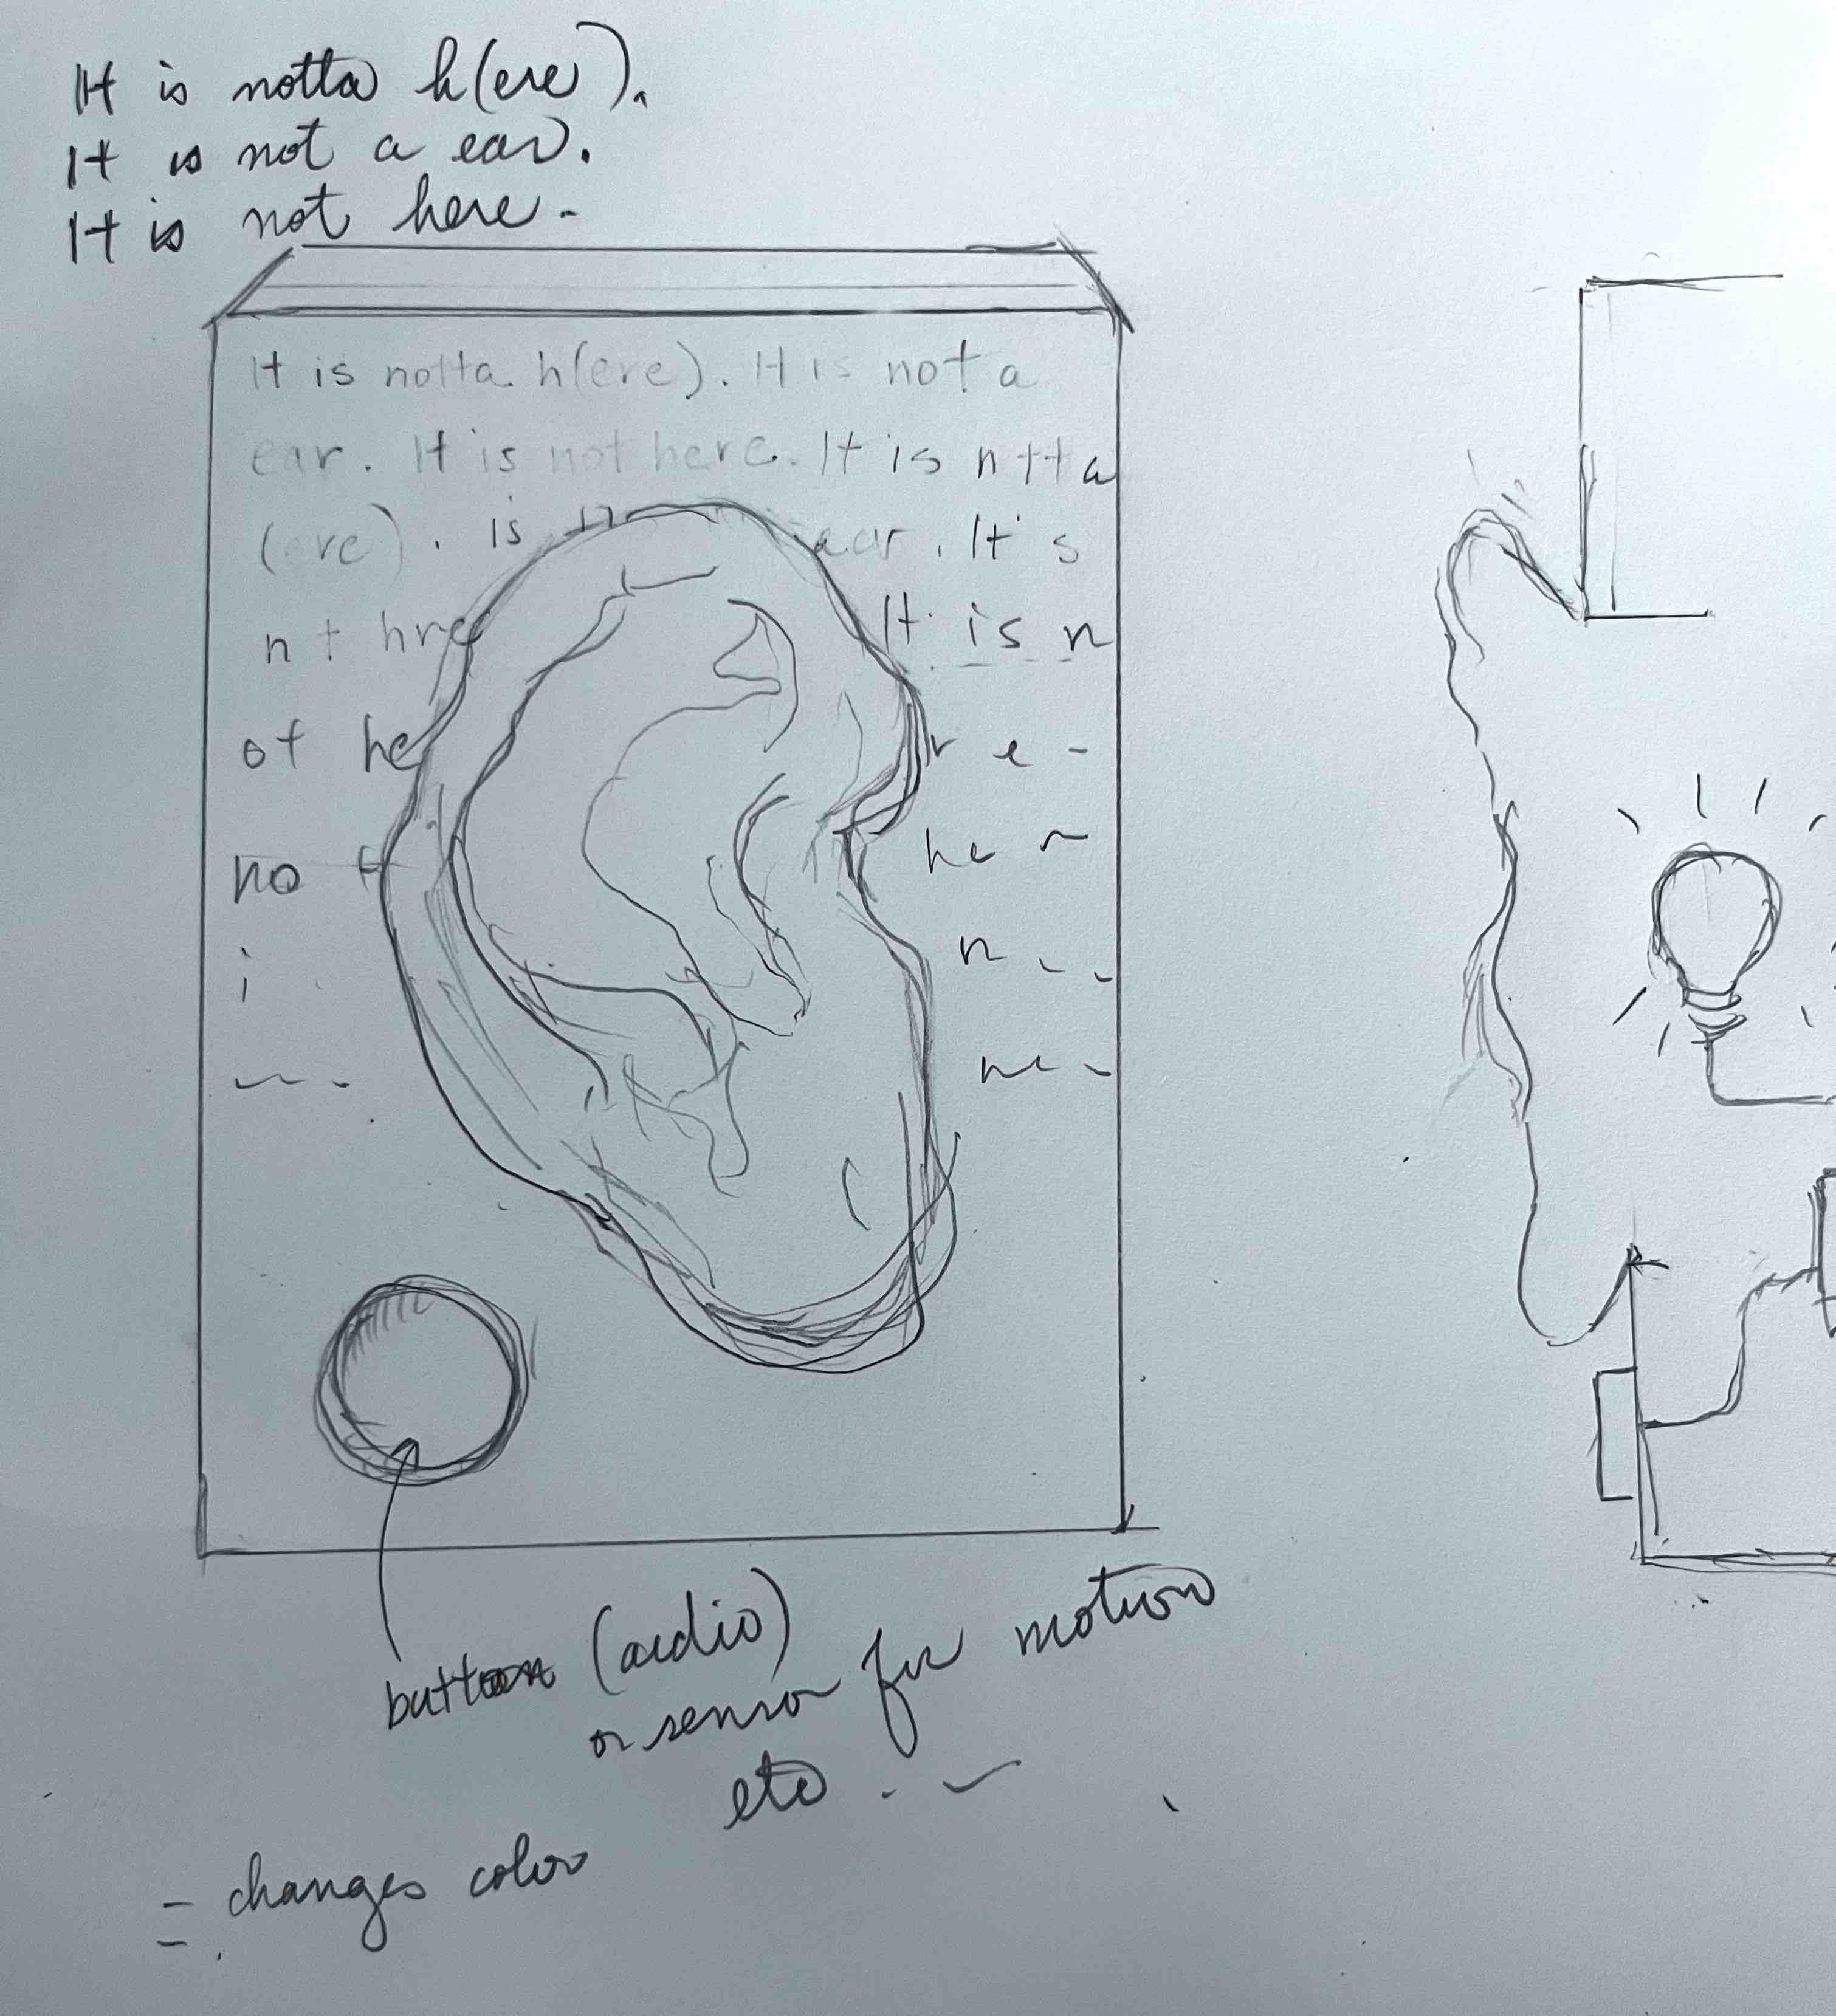 It is notta h(ere).
It is not a ear.
It is not here.
It is notta h(ere). It is not a
ear. It is not here. It is n tta
(ere). is n ear. It's
n t hre It is n
ot he r e -
no t he
i n
button (audio)
or sensor for motion
etc..
- changes color
-